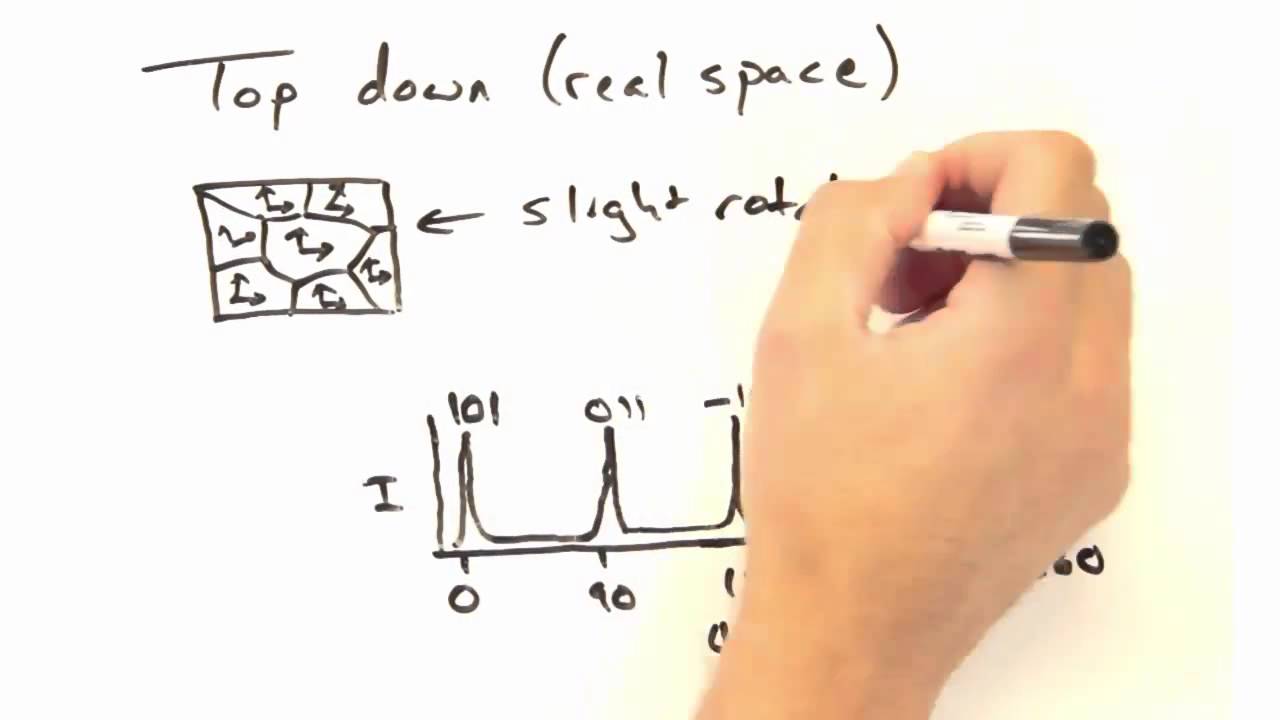 Top down (real space)
slight
101 011 -1
I
0 90